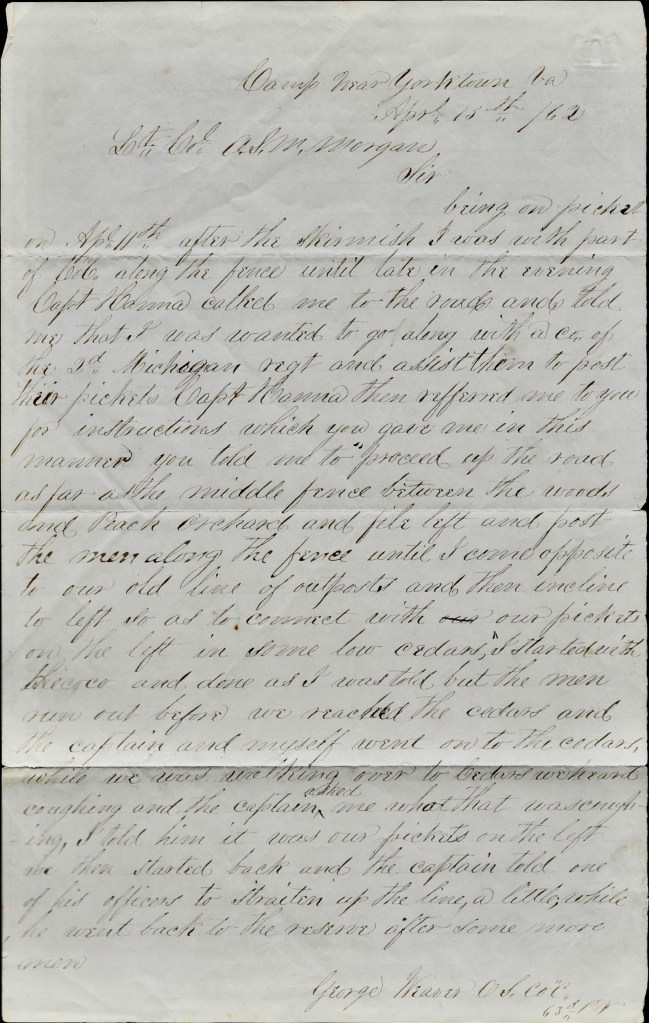 Camp Near Yorktown Va
Aprl 15th /62
Lt. Col. A.S.M. Morgan
Sir
being on picket
on Apl 11th after the skirmish I was with part
of Co C. along the fence until late in the evening
Capt Hanna called me to the road and told
me that I was wanted to go along with a co. of
the 2d Michigan regt and assist them to post
their pickets Capt Hanna then refferred me to you
for instructions which you gave me in this
manner you told me to "proceed up the road
as far as the middle fence between the woods
and Peach orchard and file left and post
the men along the fence until I come opposite
to our old line of outposts and then incline
to left so as to connect with our our pickets
on the left in some low cedars," I started with
the co and done as I was told but the men
run out before we reached the cedars and
the captain and myself went on to the cedars,
while we was walking over to Cedars we heard
coughing and the captain asked me what that was cough-
-ing, I told him it was our pickets on the left
we then started back and the captain told one
of his officers to straiten up the line, a little, while
he went back to the reserve after some more
men
George Weaver O.S. Co C.
63d P V